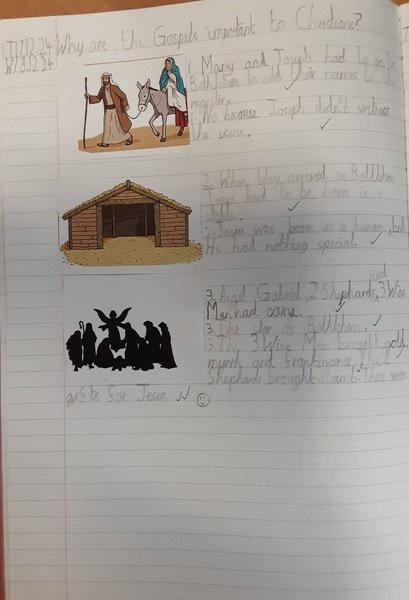 T17.12.24 Why are the Gospels important to Christians?
W18.12.24
1. Mary and Joseph had to go to
Bethlehem to add their names to the
register.
No because Joseph didn't witness
the scene.
2. When they arrived in Bethlehem
Jesus had to be born in a
stable.
2. Jesus was born as a human, but
He had nothing special.
3. Angel Gabriel, 2 Shephards, and 3 Wise
Men had came.
3. The star of Bethlehem.
3. The 3 Wise Men brought gold,
myrrh and frankincense. The 2
Shephards brought a lamb. These were
gifts for Jesus.